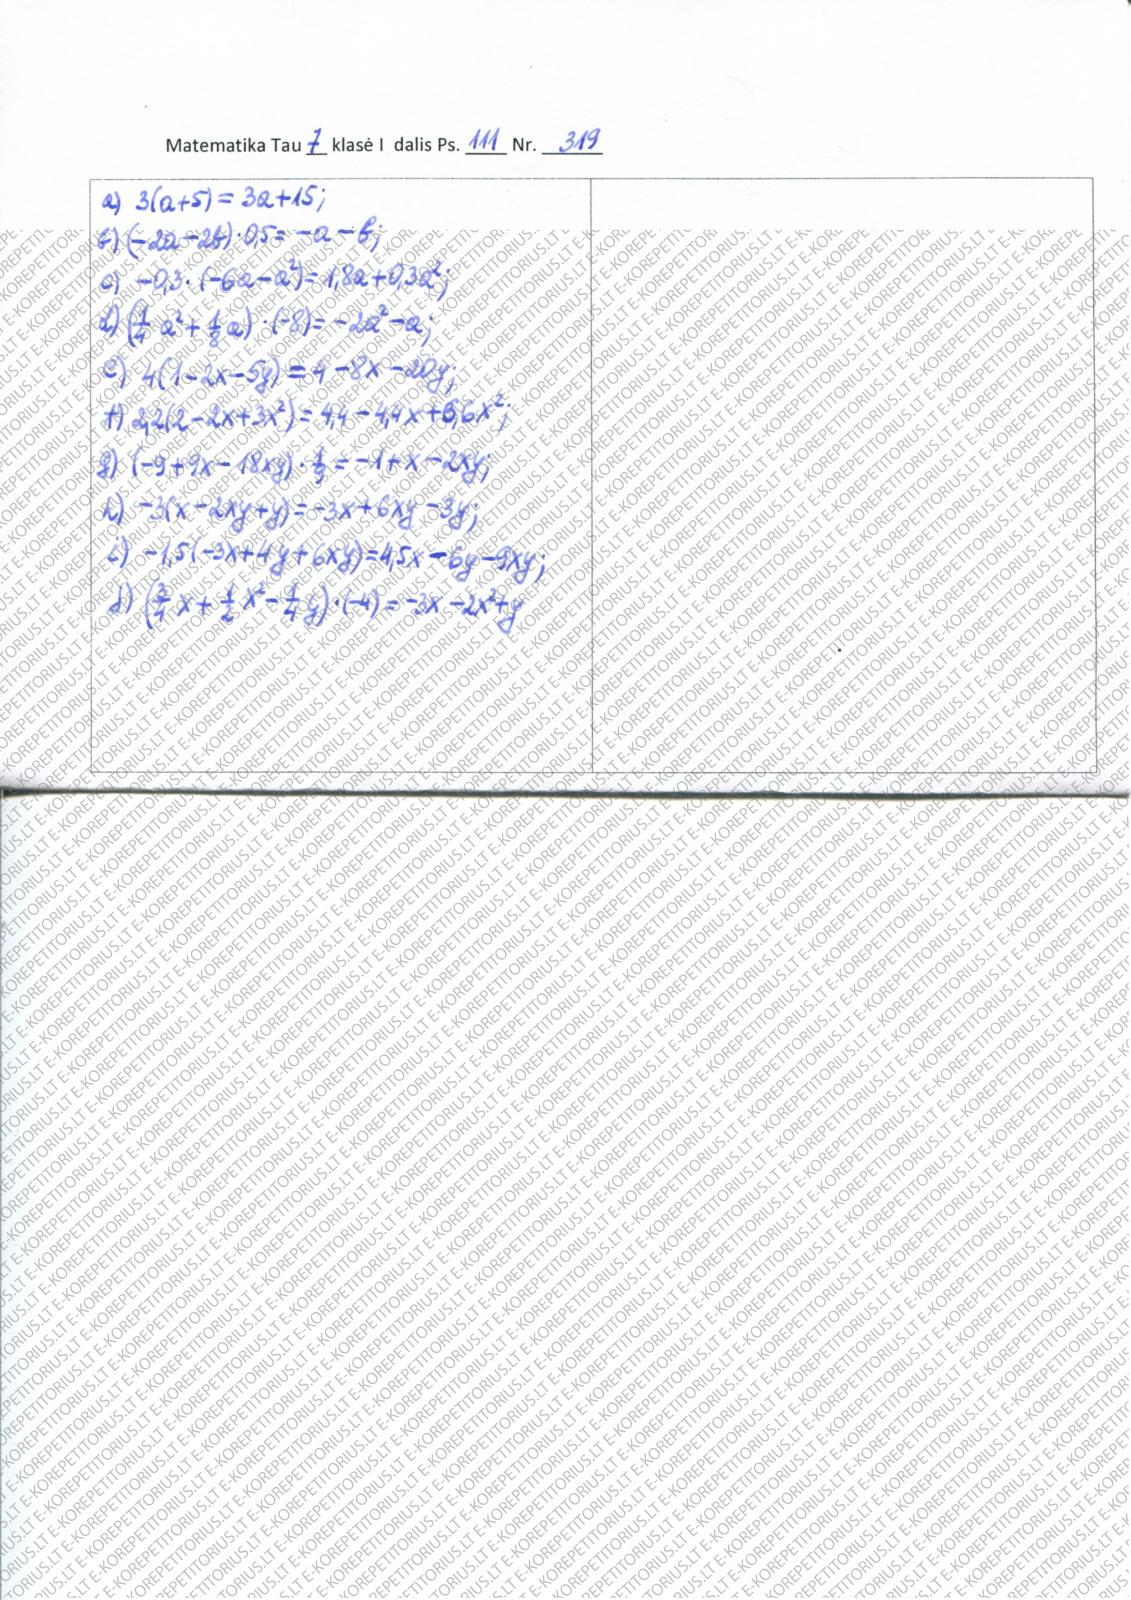 Matematika Tau 7 klasė I dalis Ps. 111 Nr. 319
a) 3(a+5) = 3a+15;
b) (-2a-2b)·0,5 = -a-b;
c) -0,3·(-6a-a²) = 1,8a+0,3a²;
d) (1/4 a² + 1/8 a)·(-8) = -2a²-a;
e) 4(1-2x-5y) = 4-8x-20y;
f) 2,2(2-2x+3x²) = 4,4-4,4x+6,6x²;
g) (-9+9x-18xy)·1/9 = -1+x-2xy;
h) -3(x-2xy+y) = -3x+6xy-3y;
i) -1,5(-3x+4y+6xy) = 4,5x-6y-9xy;
j) (3/4 x + 1/2 x² - 1/4 y)·(-4) = -3x-2x²+y
E-KOREPETITORIUS.LT